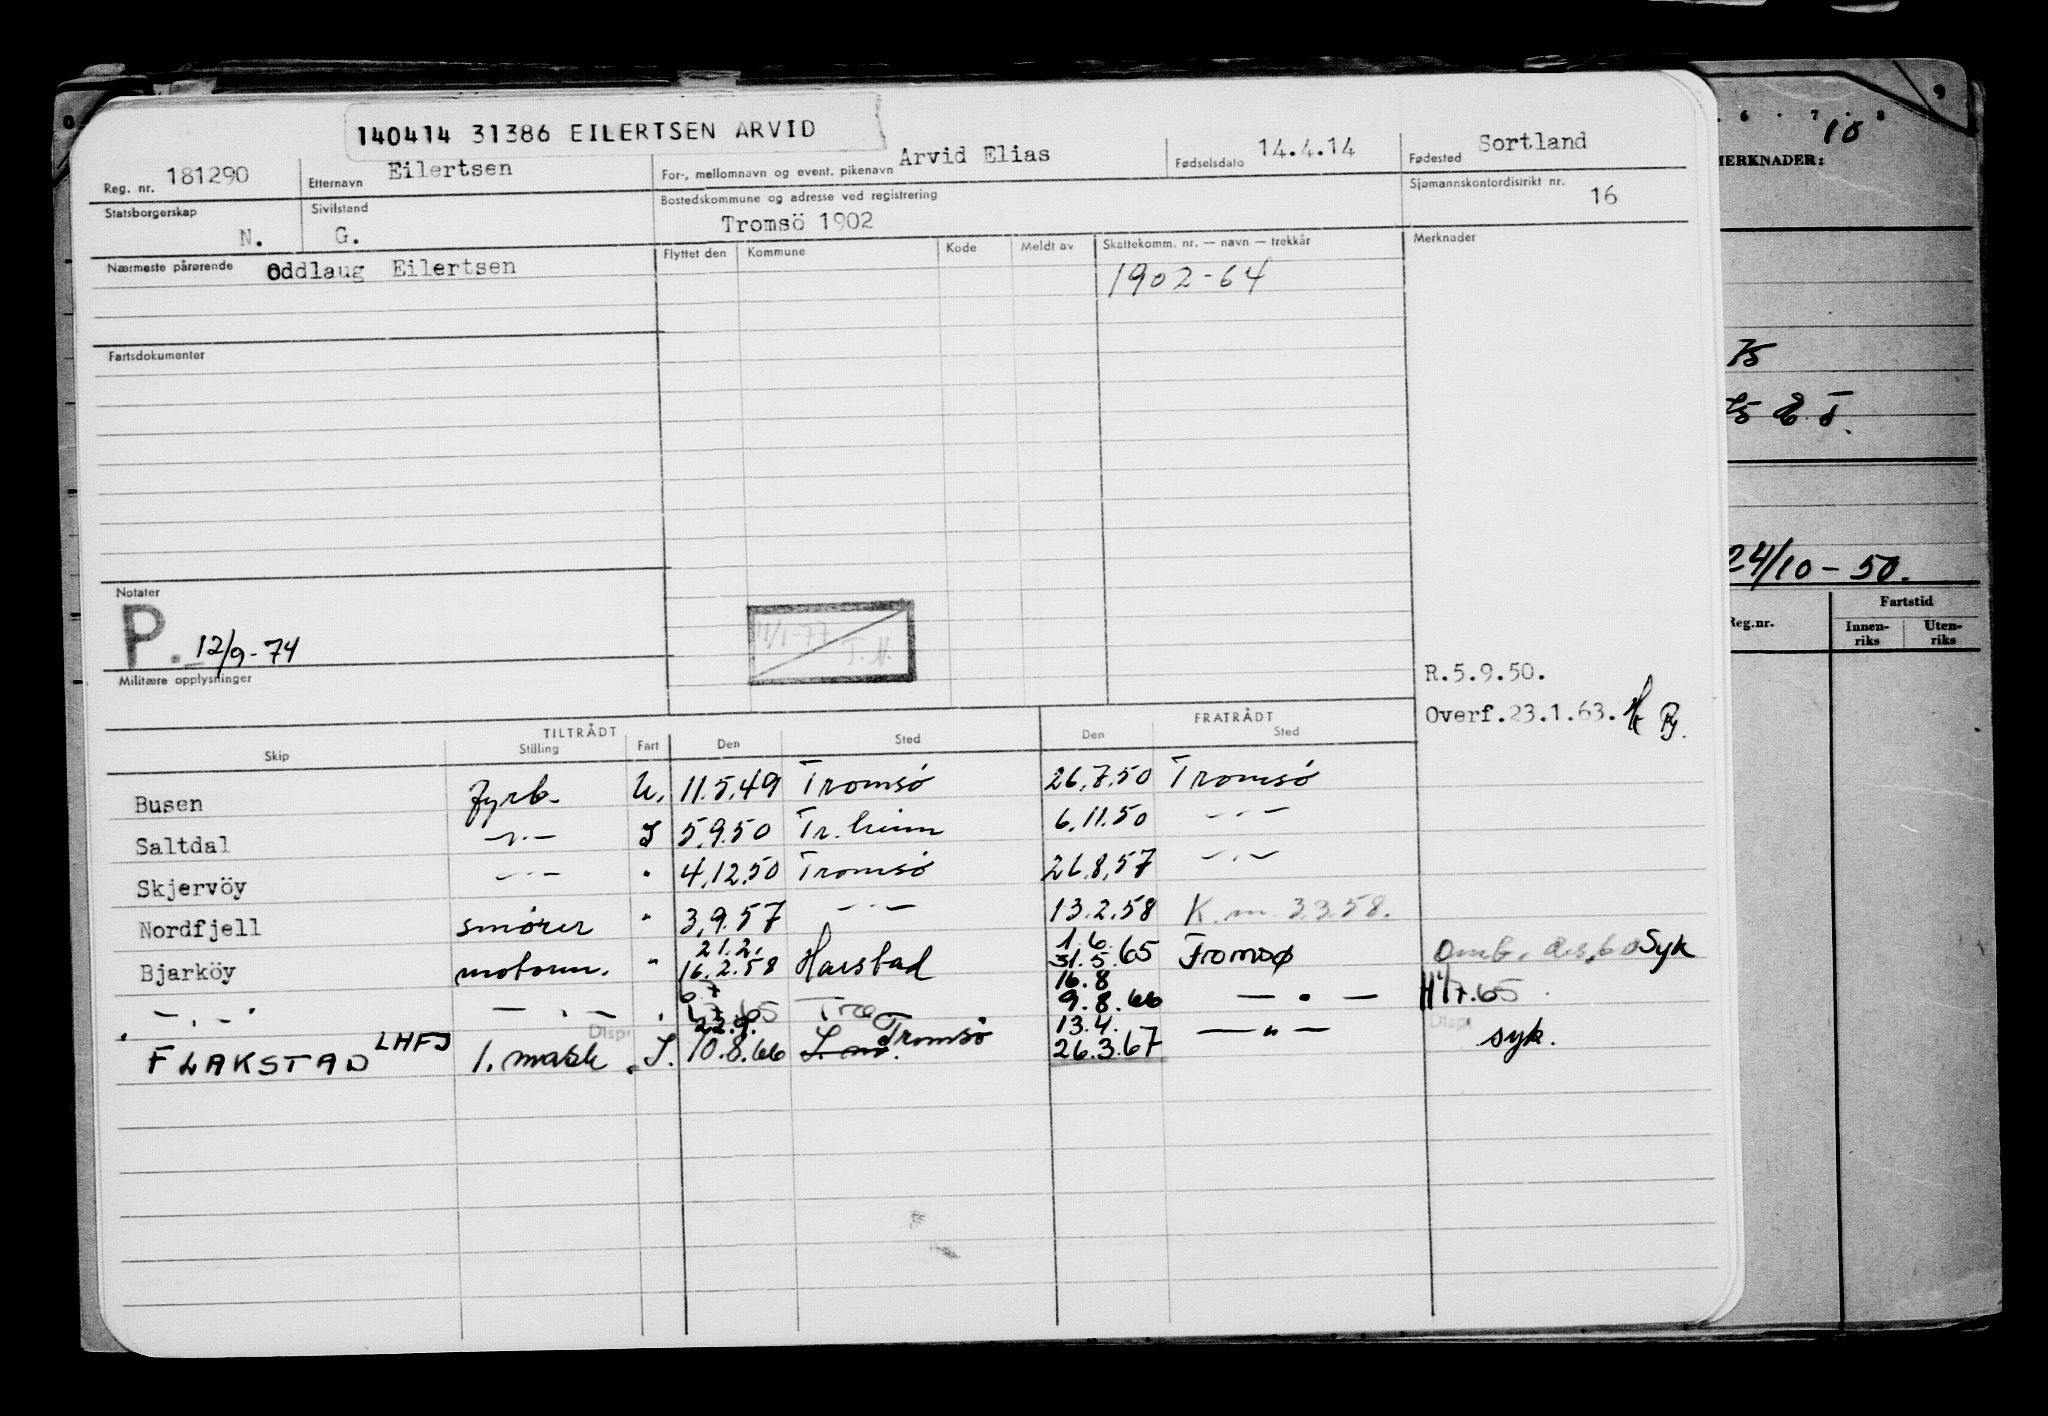 140414 31386 EILERTSEN ARVID
Reg. nr. 181290 Etternavn Eilertsen For-, mellomnavn og event. pikenavn Arvid Elias Fødselsdato 14.4.14 Fødested Sortland
Statsborgerskap N. Sivilstand G. Bostedskommune og adresse ved registrering Tromsö 1902 Sjømannskontordistrikt nr. 16
Nærmeste pårørende Oddlaug Eilertsen
Flyttet den Kommune Kode Meldt av Skattekomm. nr. — navn — trekkår Merknader
1902-64
Fartsdokumenter
Notater
P. 12/9-74
11/1-77 T.H.
Militære opplysninger
R.5.9.50.
Overf.23.1.63.
TILTRÅDT FRATRÅDT
Skip Stilling Fart Den Sted Den Sted
Busen fyrb. U. 11.5.49 Tromsö 26.7.50 Tromsö
Saltdal —"— I 5.9.50 Tr.heim 6.11.50 —"—
Skjervöy —"— " 4.12.50 Tromsö 26.8.57 —"—
Nordfjell smörer " 3.9.57 —"— 13.2.58 K.m. 3.3.58.
21.2. 1.6.
Bjarköy motorm. " 16.2.58 Harstad 31.5.65 Tromsø Syk
16.8
—"— —"— 9.8.66 —"— 7.65
22.9. 13.4.
FLAKSTAD LHFJ 1. mask I. 10.8.66 Tromsö 26.3.67 —"— syk.
Disp.
Disp.
6 7 8 9
10
MERKNADER:
75
75 E.T.
24/10-50.
Reg.nr. Fartstid
Innen-riks Uten-riks